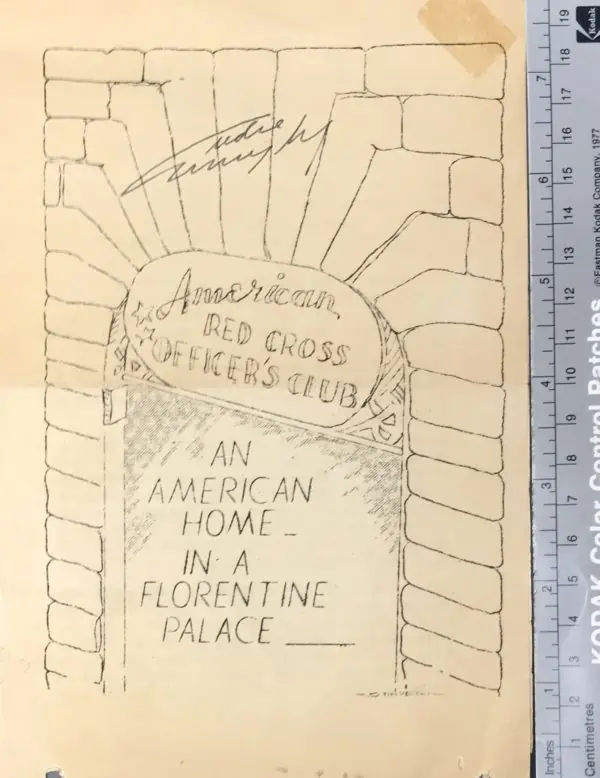 American
RED CROSS
OFFICER'S CLUB
AN
AMERICAN
HOME _
IN A
FLORENTINE
PALACE ____
Kodak
©Eastman Kodak Company, 1977
KODAK Color Control Patches
Inches
1 2 3 4 5 6 7
Centimetres
1 2 3 4 5 6 7 8 9 10 11 12 13 14 15 16 17 18 19